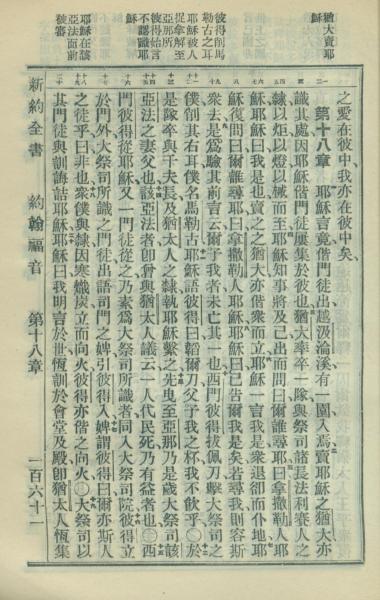 猶大賣耶
穌
彼得削馬
勒古之耳
耶穌被人
捉拿解至
亞那所
不認識耶穌
耶穌在該
亞法面前
被審
之愛在彼中我亦在彼中矣
第十八章 耶穌言竟偕門徒出越汲淪溪有一園入焉賣耶穌之猶大亦
識其處因耶穌偕門徒屢集於彼也猶大率一隊與祭司諸長法利賽人之
隸以炬以燈以械而至耶穌知事將及己出而問曰爾誰尋曰拿撒勒人耶
穌耶穌曰我是也賣之之猶大亦偕衆而立耶穌一言我是衆退卻而仆地耶
穌復問曰爾誰尋曰拿撒勒人耶穌耶穌曰已告爾我是矣若尋我則容斯
衆去是爲驗其前言云爾予我者未亡其一也西門彼得拔佩刀擊大祭司之
僕削其右耳僕名馬勒古耶穌語彼得曰韜爾刀父予我之杯我不飲乎○於
是隊卒與千夫長及猶太人之隸執耶穌繫之先曳至亞那乃是歲大祭司該
亞法之妻父也該亞法者卽曾與猶太人議云一人代民死乃有益者也○西
門彼得從耶穌又一門徒從之乃素爲大祭司所識者同入大祭司院彼得立
於門外大祭司所識之門徒出語司門之婢引彼得入婢謂彼得曰爾亦斯人
之徒乎曰非也衆僕與隸因寒熾炭立而向火彼得亦偕之向火○大祭司以
其門徒與訓誨詰耶穌耶穌曰我明言於世恆訓於會堂及殿卽猶太人恆集
新約全書 約翰福音 第十八章 一百六十一